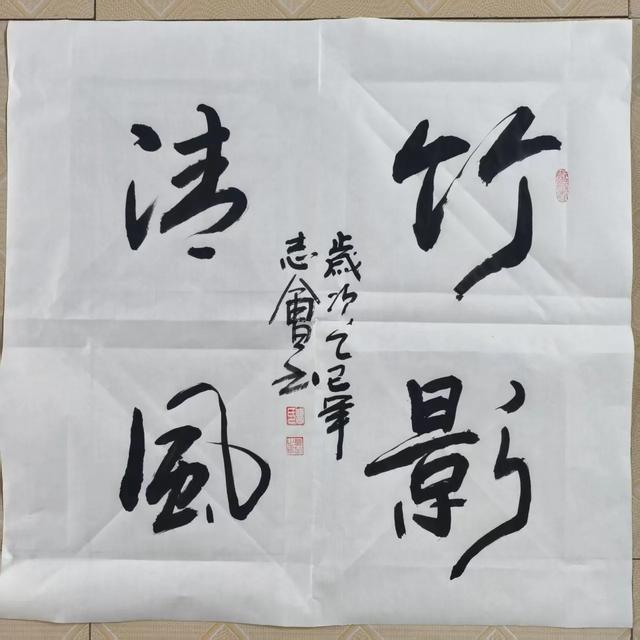 竹影
清风
歲次乙巳年
志會書